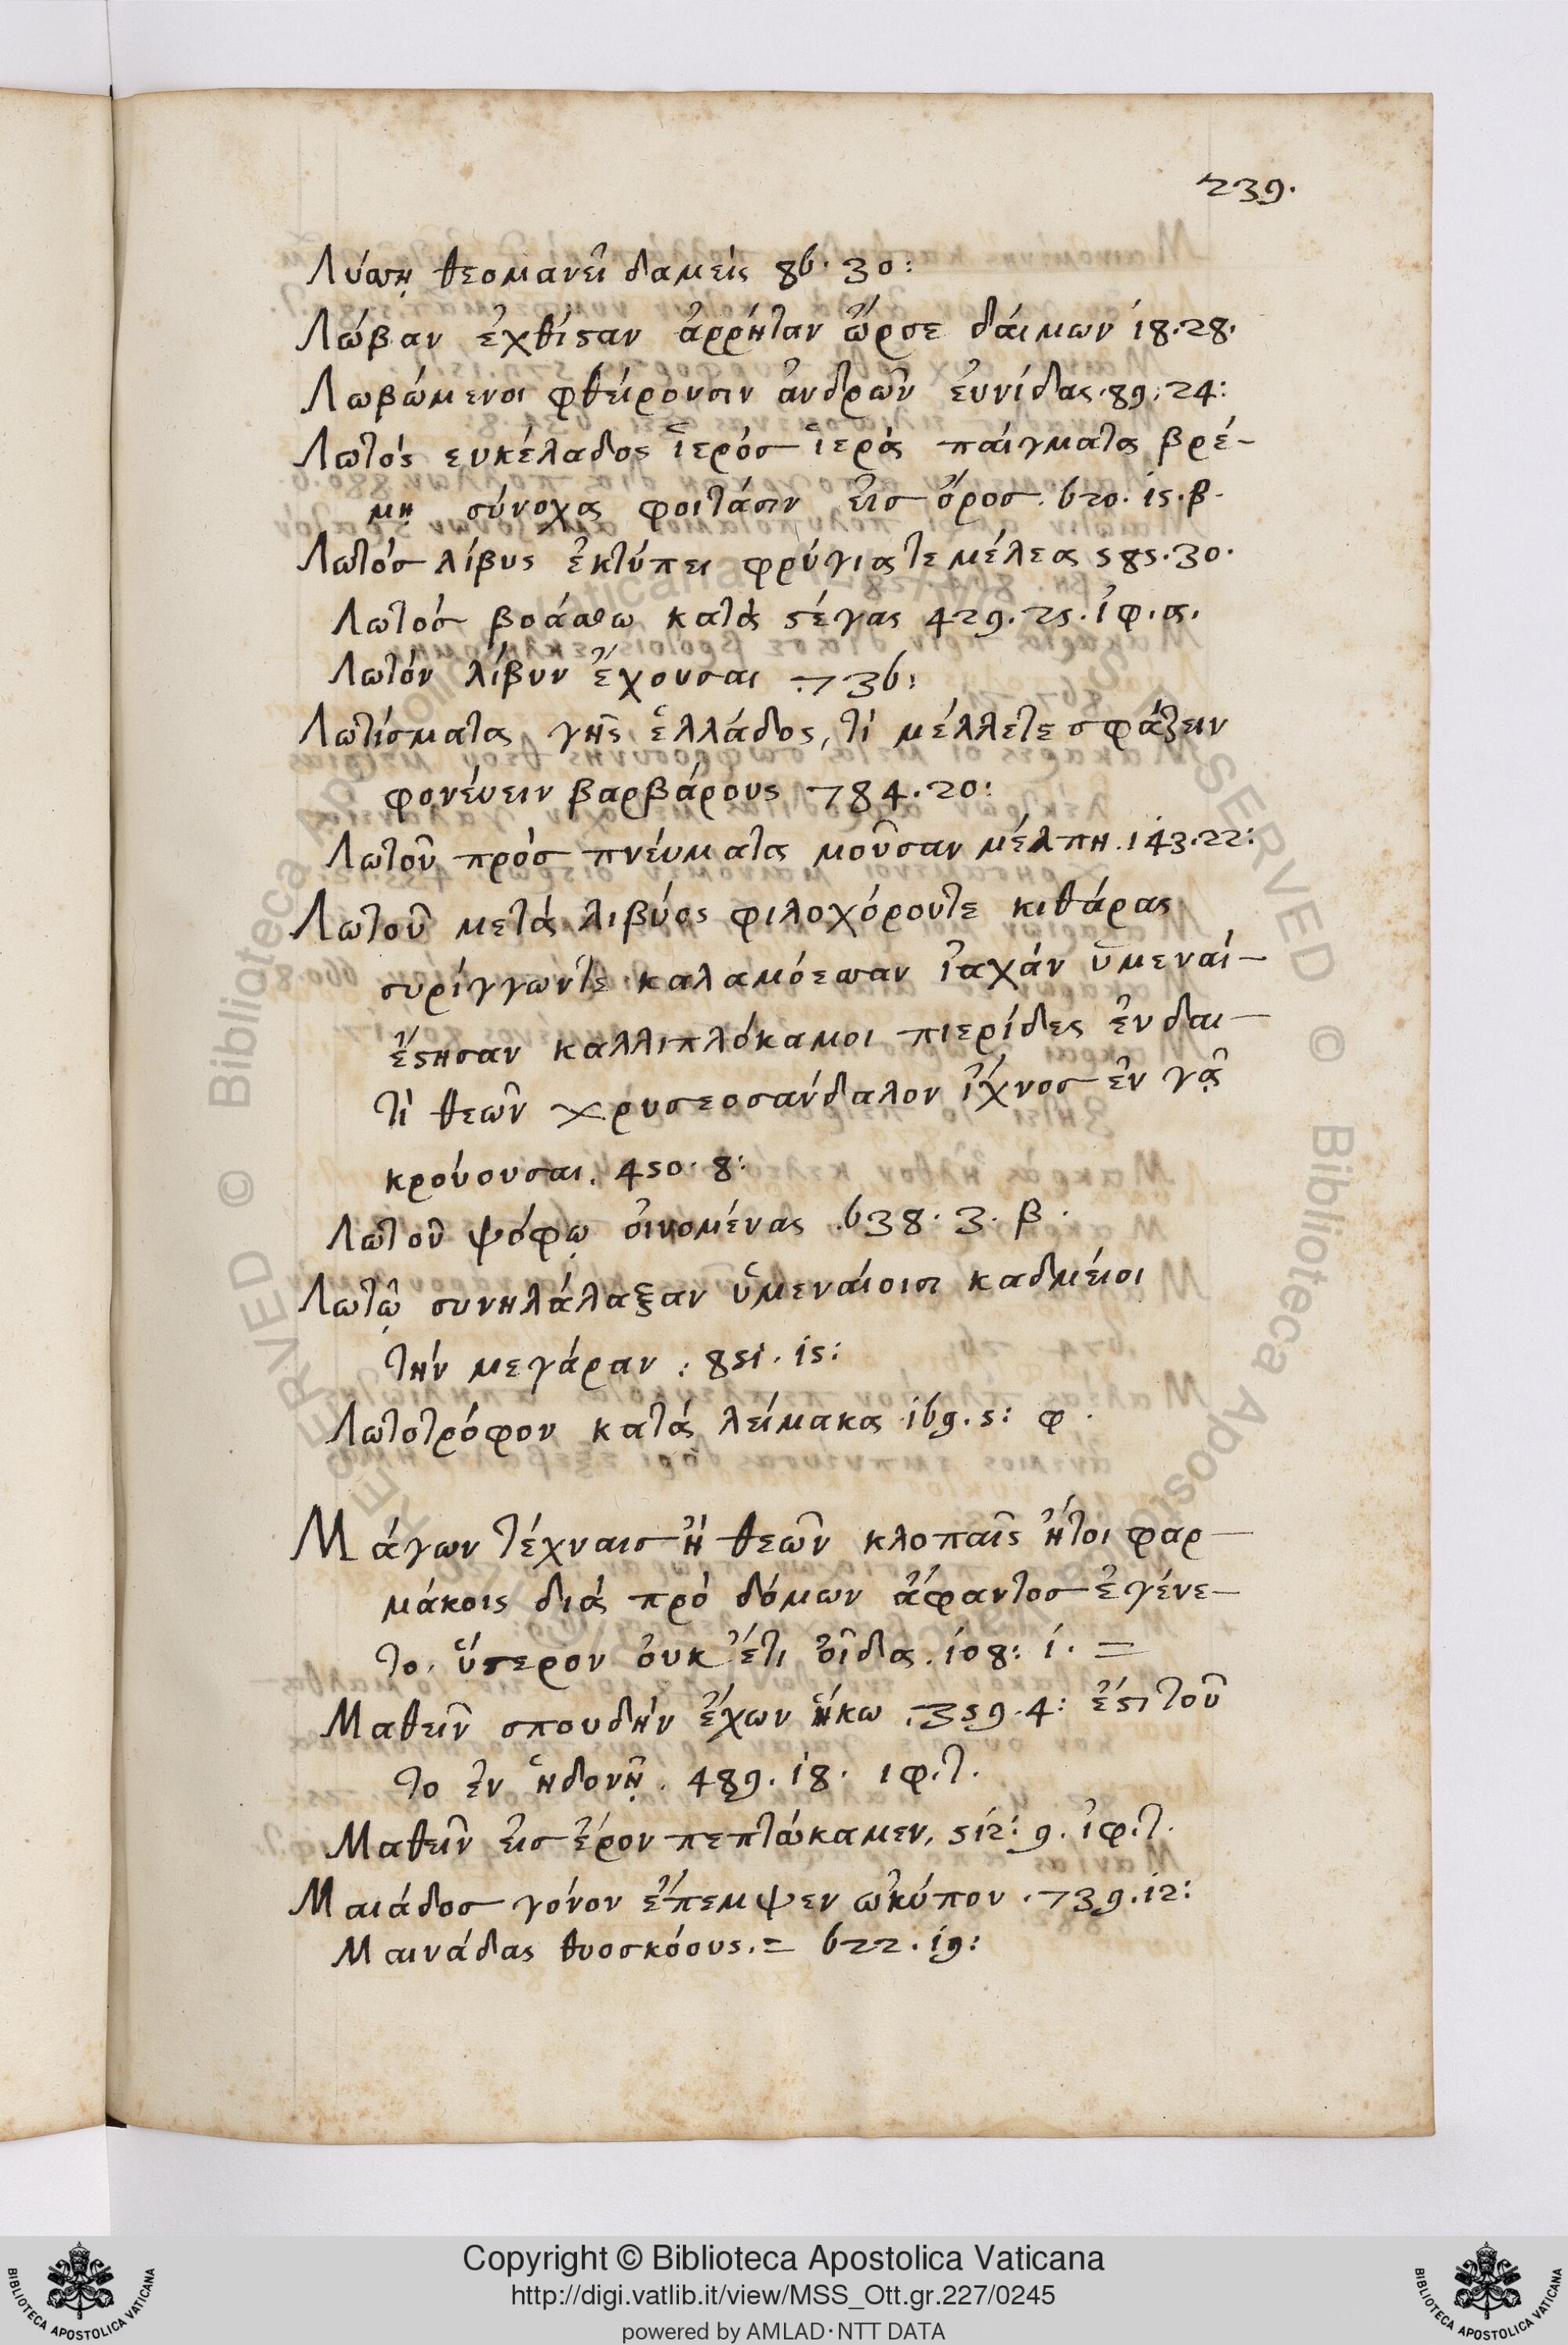 239.
Λύσσῃ θεομανεῖ δαμείς 86. 30:
Λώβαν ἐχθίσταν ἀρρήταν ὦρσε δάιμων 18. 28.
Λωβώμενοι φθείρουσιν ἀνδρῶν ἐυνίδας. 89. 24:
Λωτός ευκέλαδος ἱερόσ ἱερὰ παίγματα βρέ-
μῃ σύνοχα φοιτάσιν εἰσ ὄροσ. 620. 15. β.
Λωτόσ λίβυς ἐκτύπει φρύγιά τε μέλεα 585. 30.
Λωτόσ βοάσθω κατὰ στέγας 429. 25. ἰφ. α.
Λωτόν λίβυν ἔχουσαι 736:
Λωτίσματα γῆς ἑλλάδος, τί μέλλετε σφάζειν
φονέυειν βαρβάρους 784. 20:
Λωτοῦ πρόσ πνέυματα μοῦσαν μέλπῃ. 143. 22:
Λωτοῦ μετὰ λιβύος φιλοχόρουτε κιθάρας
συρίγγωντε καλαμόεσσαν ἰαχάν ὑμεναί-
ἔστησαν καλλιπλόκαμοι πιερίδες ἐν δαι-
τὶ θεῶν χρυσεοσάνδαλον ἴχνοσ ἐν γᾷ
κρόυουσαι. 450. 8:
Λωτοῦ ψόφῳ οἰνομένας 638. 3. β.
Λωτῷ συνηλάλαξαν ὑμεναίοισι καδμείοι
τήν μεγάραν: 851. 15:
Λωτοτρόφον κατά λείμακα 169. 5: φ.
Μάγων τέχναισ ἢ θεῶν κλοπαῖς ἤτοι φαρ-
μάκοις διὰ πρὸ δόμων ἄφαντοσ ἐγένε-
το. ὕστερον ὀυκ ἔτι οἶδα. 108: 1. =
Μαθεῖν σπουδήν ἔχων ἥκω. 359. 4: ἐστὶ τοῦ
το ἐν ἡδονῇ. 489. 18. ιφ. τ.
Μαθεῖν εἰσ ἔρον πεπτώκαμεν. 512: 9. ἰφ. τ.
Μαιάδοσ γόνον ἔπεμψεν ωκύπον. 739. 12:
Μαινάδας θυοσκόους. = 622. 19:
Copyright © Biblioteca Apostolica Vaticana
http://digi.vatlib.it/view/MSS_Ott.gr.227/0245
powered by AMLAD·NTT DATA
BIBLIOTECA APOSTOLICA VATICANA
BIBLIOTECA APOSTOLICA VATICANA